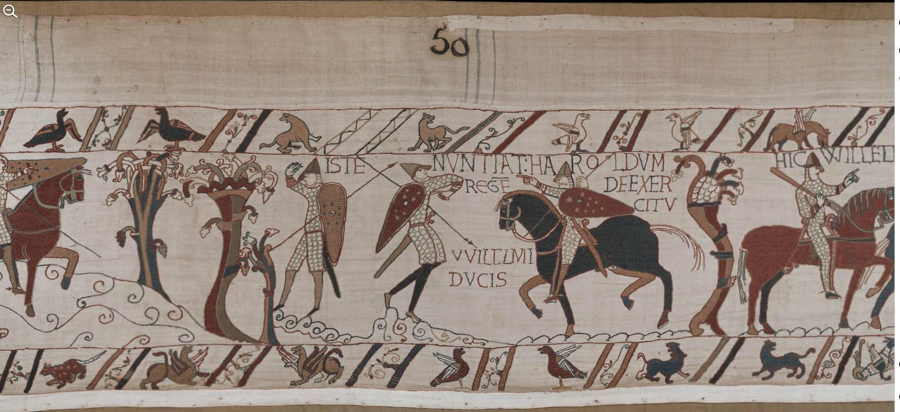 50
ISTE NVNTIAT: HAROLDVM
REGE DE EXER
CITV
VVILLELMI
DVCIS
HIC WILLEL